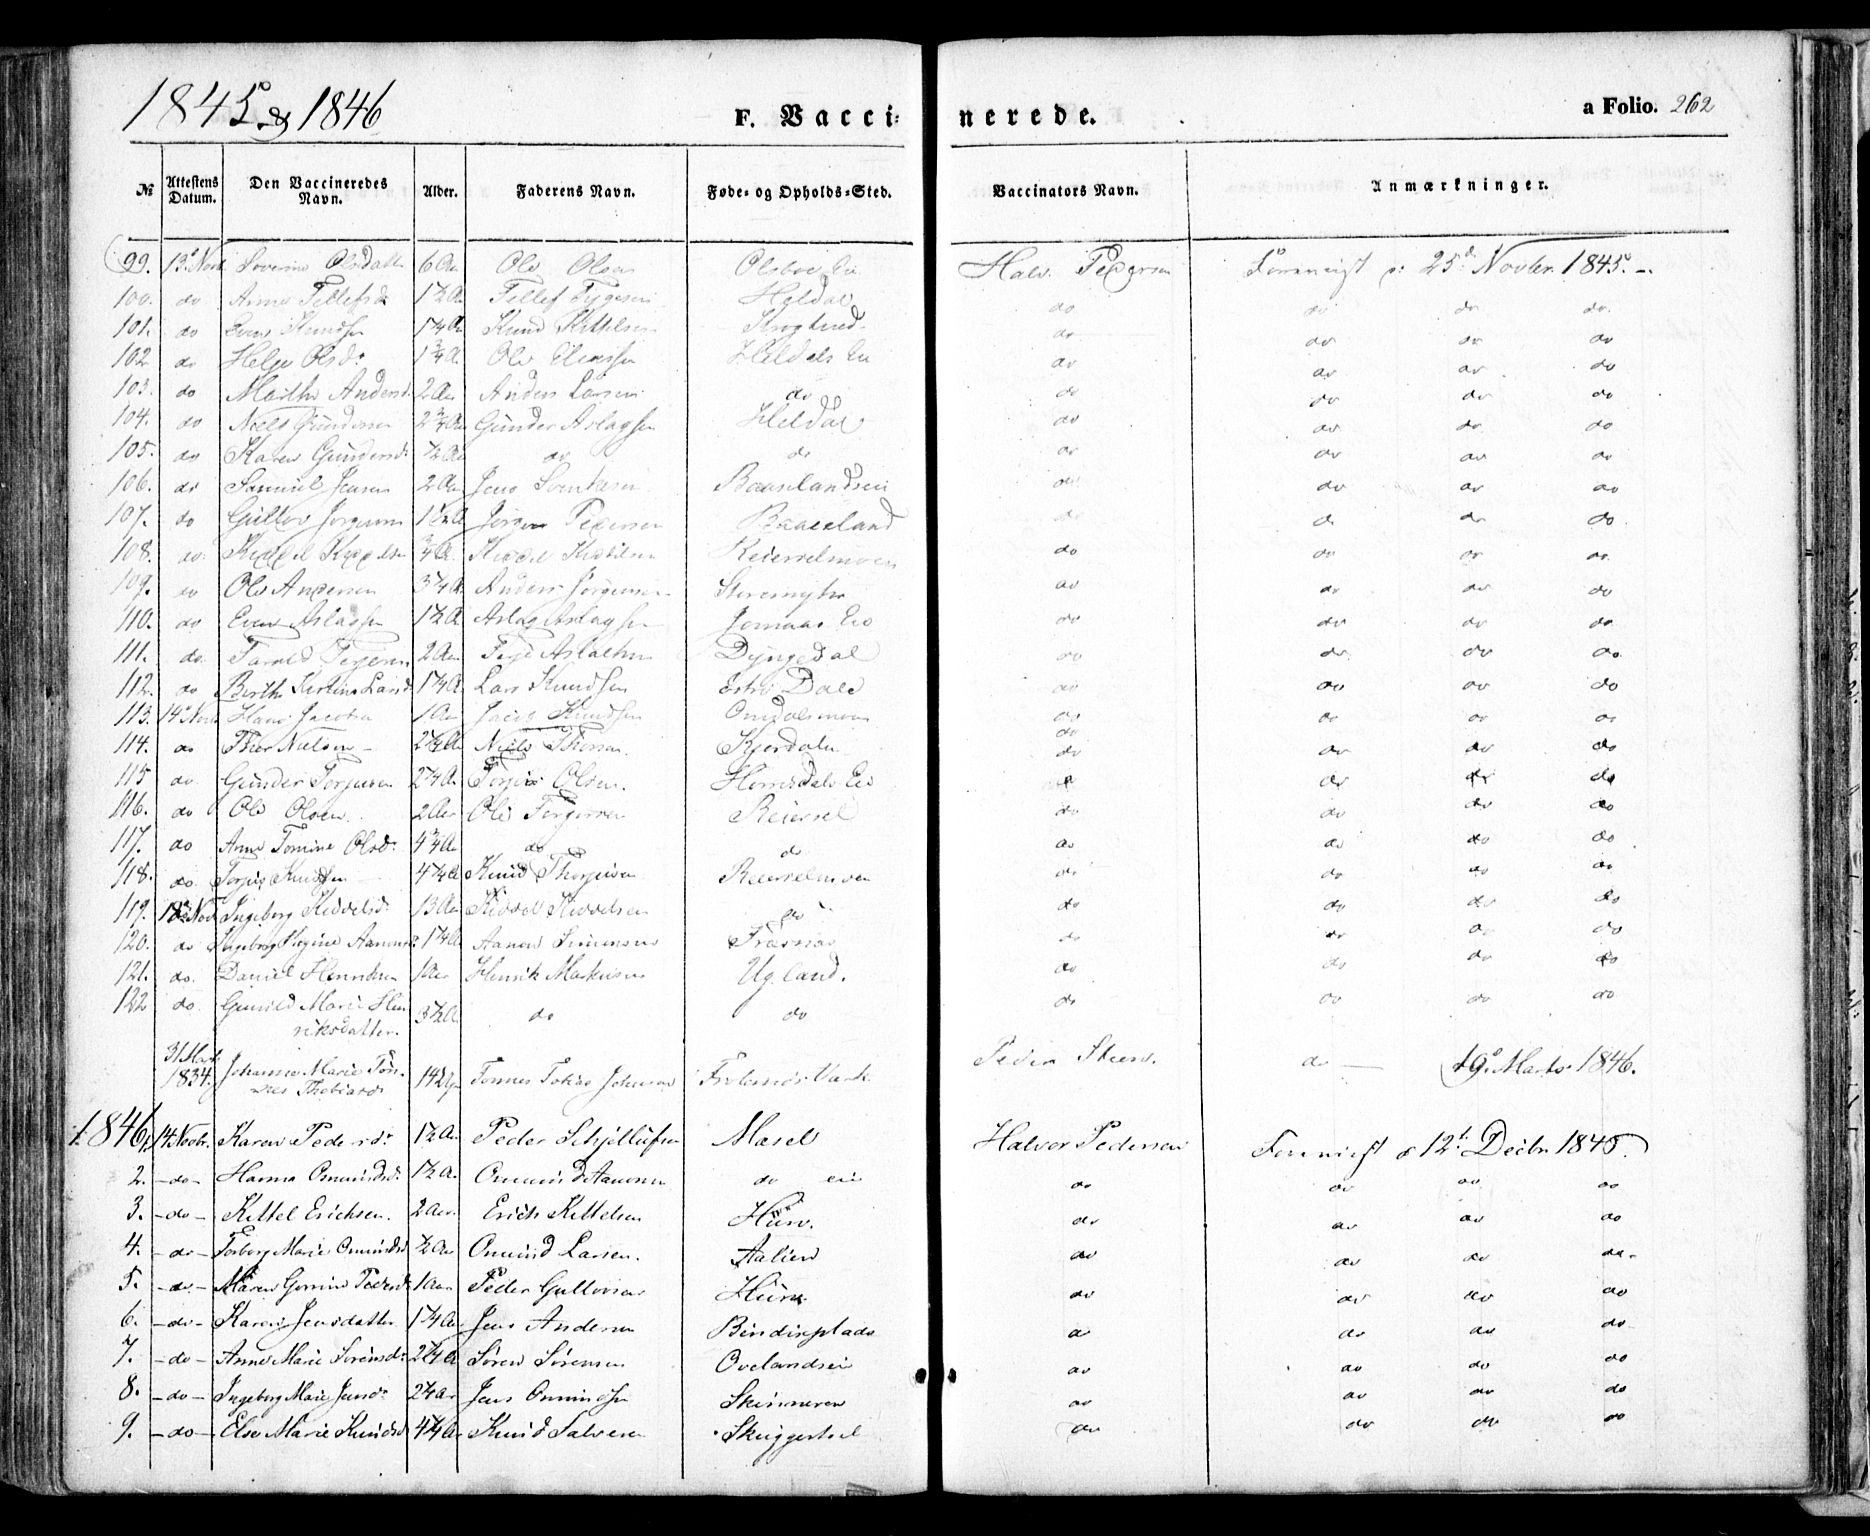 1845 & 1846 F. Vaccinerede. a Folio. 262
№ Attestens Datum. Den Vaccineredes Navn. Alder. Faderens Navn. Føde- og Opholds-Sted. Vaccinators Navn. Anmærkninger.
99. 13 Novr Severine Olsdatter 6 Aar Ole Olsen Halv. Pedersen Foreviist d: 25d Novbr. 1845.
100. do Anne Tellefsd 1½ A Tellef Heldal do do do do
101. do Even Knudsen 1¼ A Knud Kittelsen do do do do
102 do Helge Olsd. 1¾ A Ole Heldals Eie do do do do
103. do Marthe Andersd. 2 Aar Anders Larsen do do do do do
104. do Niels Gundersen 2¾ A Gunder Aslagsen Heldal do do do do
105. do Karen Gundersd. ½ A do do do do do do
106. do Samuel Jensen 2 Aar Jens Baaselandseie do do do do
107. do Guttov Jørgensen 1½ A Jørgen Pedersen Baaseland do do do do
108. do ¾ A Reierselmoen do do do do
109. do Ole Andersen 3¼ A Anders Jørgensen Storemyhr do do do do
110. do Even Aslagsen 1½ A Aslag Aslagsen Jomaas Eie do do do do
111. do Tarald Terjesen 2 Aar Terje Dyngedal do do do do
112. do Berthe Kirstine Larsd 1¼ A Lars Knudsen Østre Dale do do do do
113. 14 Novr Hans Jacobsen 1 Aar Jacob Knudsen Omdalsmoen do do do do
114. do Thor Nielsen 2¼ A Niels Thorsen Kjerdalen do do do do
115 do Gunder Torjusen 2¼ A Torjus Olsen. Homsdals Eie do do do do
116. do Ole Olsen. 2 Aar Ole Torjussen Reiersel do do do do
117. do Anne Tomine Olsd. 4¾ A do do do do do do
118. do Torjus Knudsen 4¼ A Knud Thorjusen Reierselmoen do do do do
119. 18 Nov Ingeborg Kiddelsd 13 Aar Kiddel Kiddelsen do do do do do
120. do Ingeborg Regine Aanonsd 1¼ A Aanon Simonsen Træsnæs do do do do
121. do. Daniel Henriksen 1 Aar Henrik Markusen Ugland. do do do do
122 do. Gunild Marie Hen
riksdatter. 3½ A do do do do do do
31 Mart
1834. Johanne Marie Tøn-
nes Thobiasd 14 Tønnes Tobias Johnsen Frolands Værk Peder Steen. do 19 Marts 1846.
1846, 1. 14 Novbr. Karen Pedersd. 1½ Aar Peder Schjellufsen Masel Halvor Pedersen Foreviist d 12t Decbr 1845.
2. -do- Hanna Omundsd. 1½ A. Omund Aanonsen do eie do do do do
3. -do- Kittel Erichsen. 2 Aar. Erich Kittelsen Huus. do do do do
4. -do- Torborg Marie Omundsd ½ Aar Omund Larsen. do do do do
5. -do- Maren Gurine Pedersd 1 Aar Peder Guttormsen Huus. do do do do
6. -do- Karen Jensdatter 1¼ A Jens Andersen Bindinsplads do do do do
7. -do- Anne Marie Sørensd. 2¼ A Søren Sørensen Ovelandseie do do do do
8. -do- Ingeborg Marie Jensd. 2¼ A Jens Omundsen Skinneren do do do do
9. -do- Else Marie Knudsd 4¼ A Knud Salvesen Skuggestøl do do do do